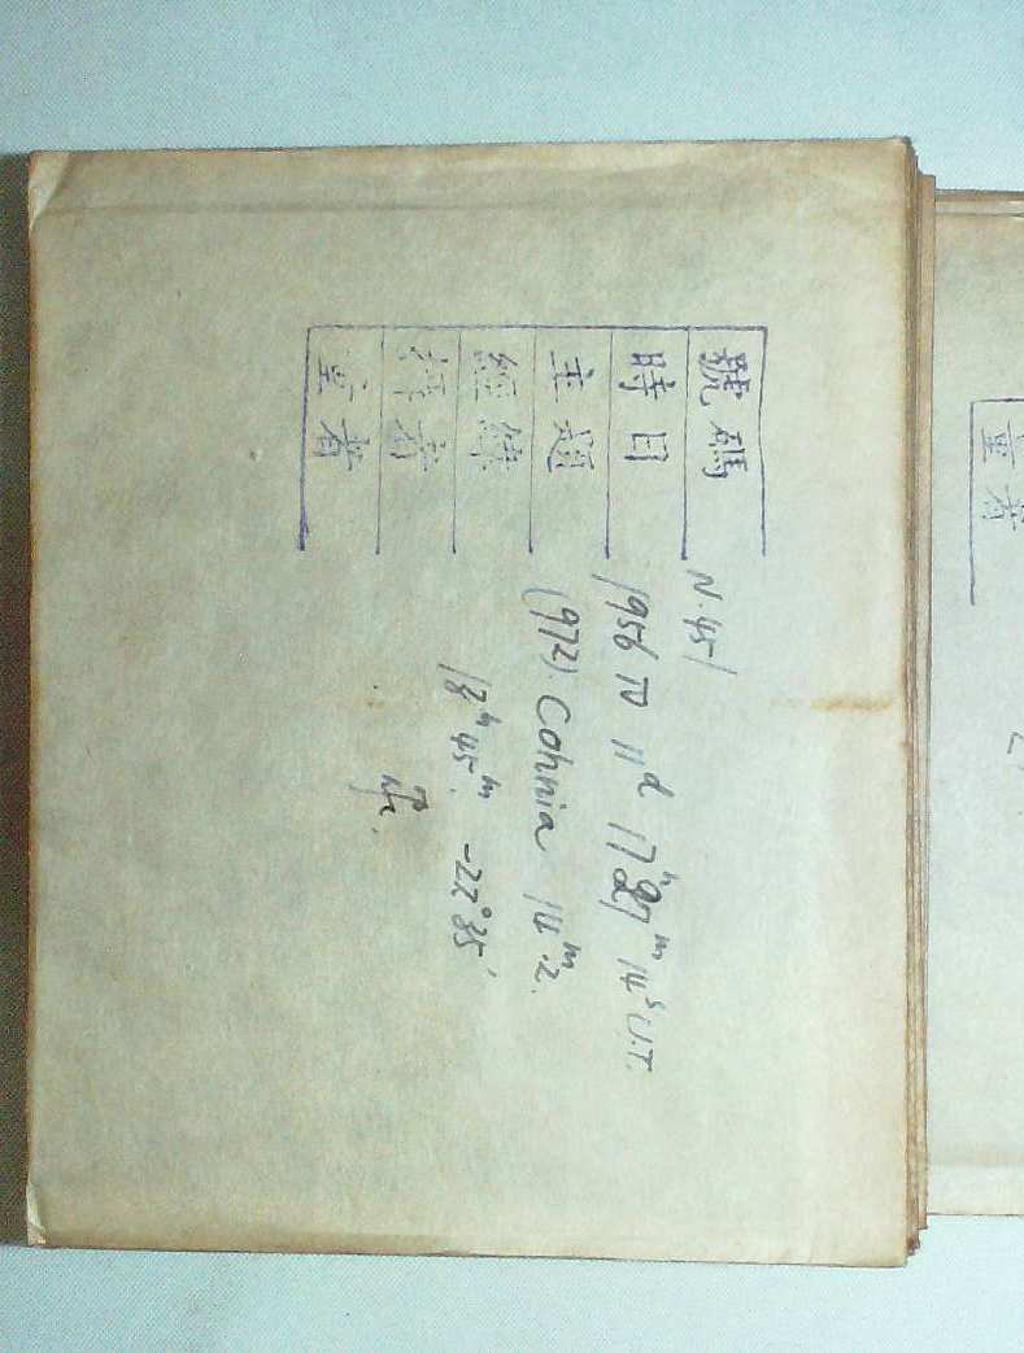 號碼 N.451
時日 1956 IV 11d 17h 27m 14s U.T.
主題 (972) Cohnia 14m.2.
經緯 13h 45m. -22°35'
者
量者
量者